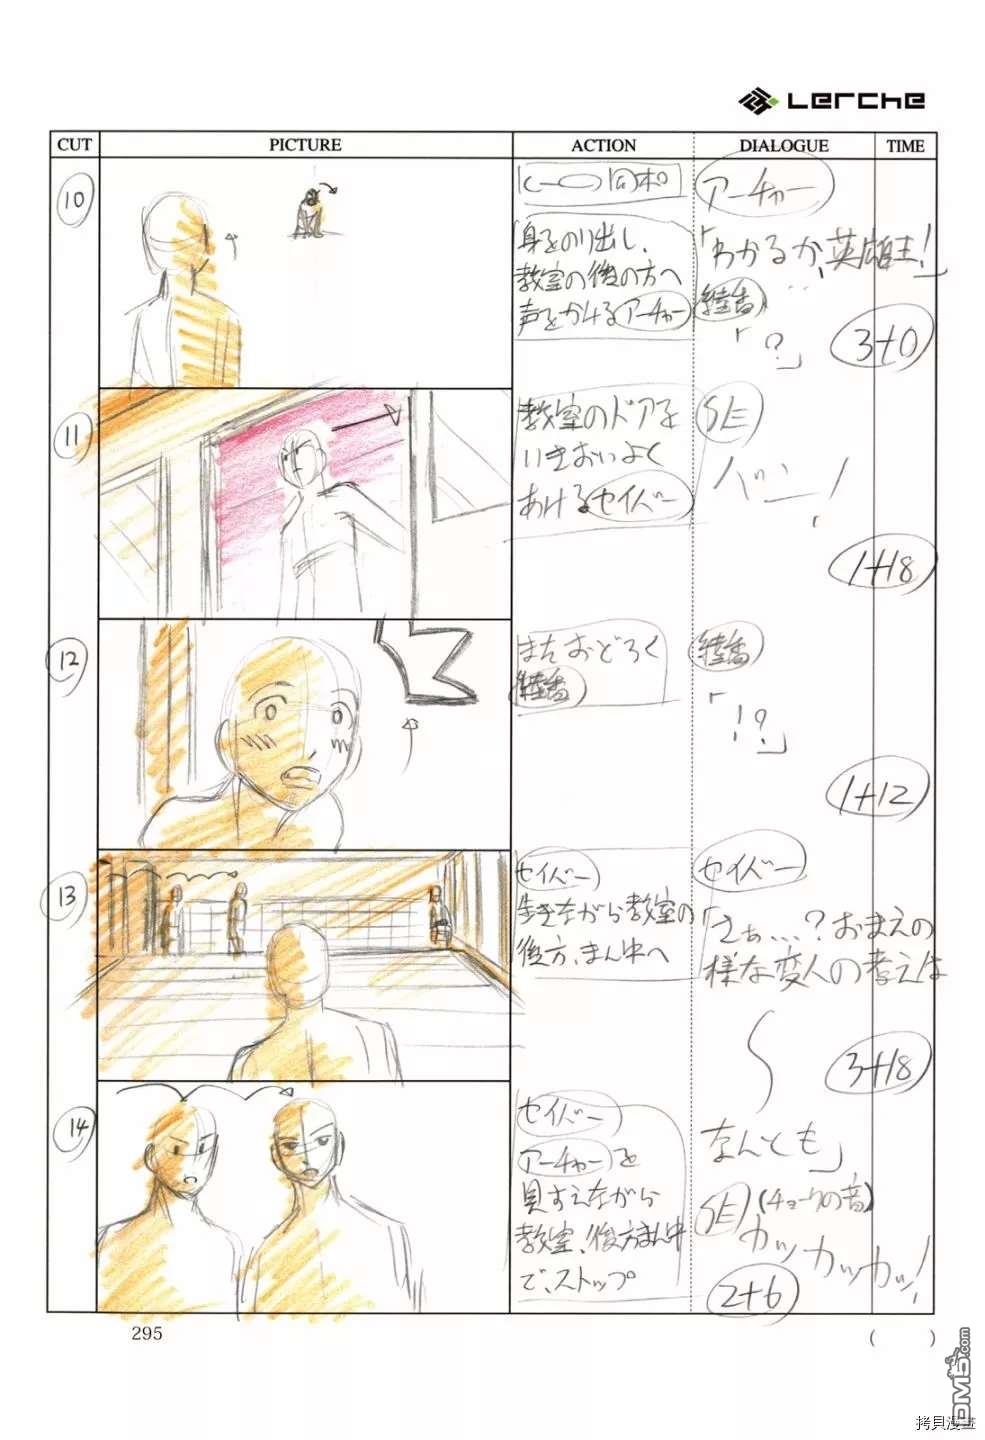 Lerche
CUT
PICTURE
ACTION
DIALOGUE
TIME
10
同ポ
身をのり出し、
教室の後の方へ
声をかけるアーチャー
アーチャー
「わかるか、英雄王!」
綾香
「?」
3+0
11
教室のドアを
いきおいよく
あけるセイバー
SE
バン!
1+18
12
またおどろく
綾香
綾香
「!?」
1+12
13
セイバー
歩きながら教室の
後方、まん中へ
セイバー
「さぁ…?おまえの
様な変人の考えは
3+18
14
セイバー
アーチャーを
見すえながら
教室、後方まん中
で、ストップ
なんとも」
SE(チョークの音)
カッカッカッ!
2+6
295
( )
DM5.com
拷貝漫畫